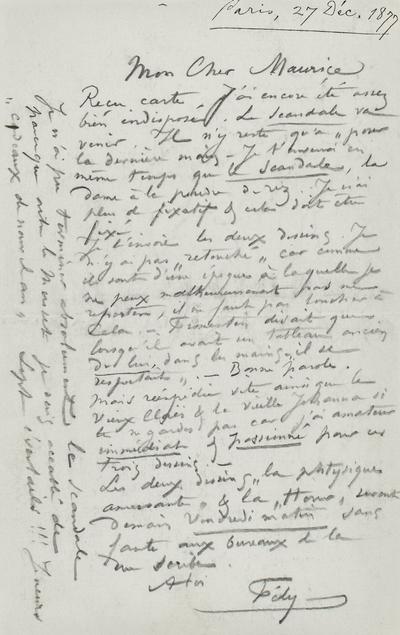 Paris, 27 Déc. 1877
Mon Cher Maurice
Reçu carte. J'ai encore été assez
bien indisposé. Le Scandale va
venir. Il n'y reste qu'à "poser
la dernière main" – Je t'enverrai en
même temps que le Scandale, la
dame à la poudre de riz. Je n'ai
plus de fixatif & cela doit être
fixé.
Je t'envoie les deux dessins. Je
n'y ai pas "retouché" car comme
ils sont d'une époque à laquelle je
ne peux malheureusement pas me
reporter, il ne faut pas toucher à
cela. – Fromentin disait que
lorsqu'il avait un tableau ancien
de lui, dans les mains, il se
respectait". – Bonne parole.
Mais réexpédie vite ainsi que le
vieux & la vieille Johanna si
tu ne gardes pas car j'ai amateur
immédiat & passionné pour ces
trois dessins –
Les deux dessins "la
amusante" & la "
demain Vendredi matin sans
faute aux bureaux de la
A toi
Fély
Je n'ai pu terminer absolument le Scandale
parce que suis accablé de
"cadeaux de nouvel an" Sept !!!